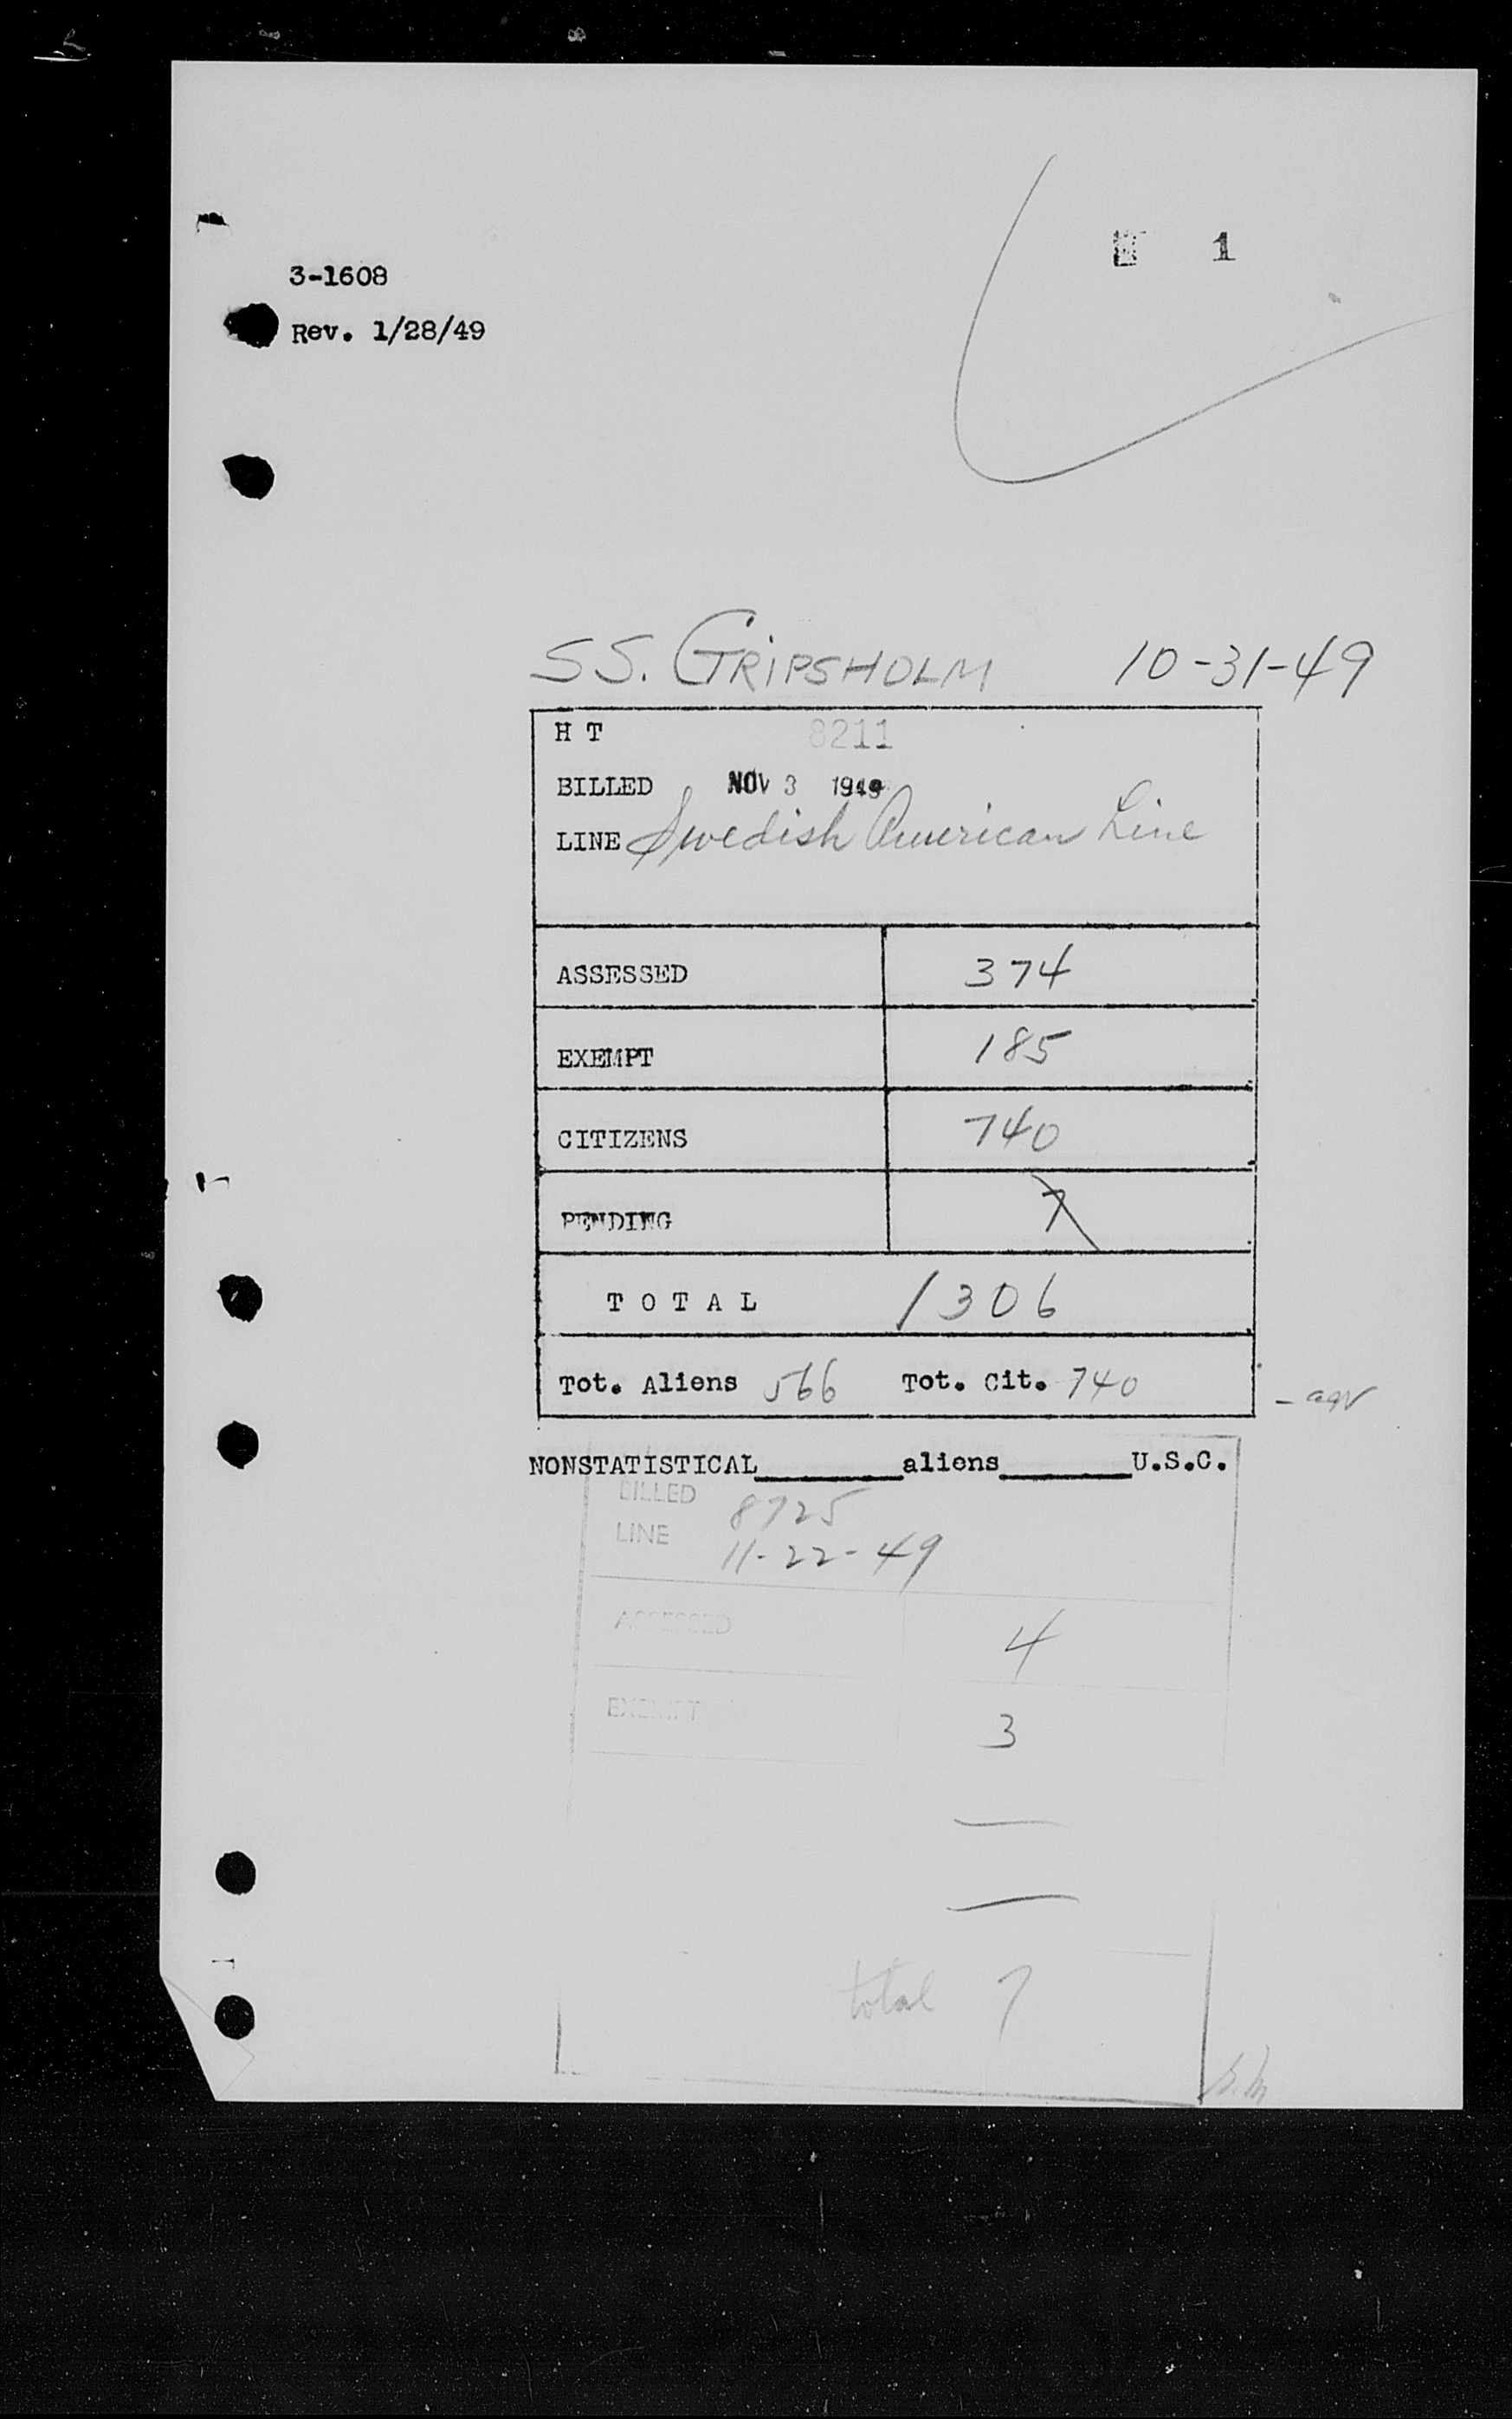 1
3-1608
Rev. 1/28/49
SS. GRIPSHOLM 10-31-49
H T 8211
BILLED NOV 3 1949
LINE Swedish American Line
ASSESSED 374
EXEMPT 185
CITIZENS 740
PENDING 7
T O T A L 1306
Tot. Aliens 566 Tot. Cit. 740
NONSTATISTICAL aliens U.S.C.
BILLED 8725
LINE 11-22-49
ASSESSED 4
EXEMPT 3
total 7